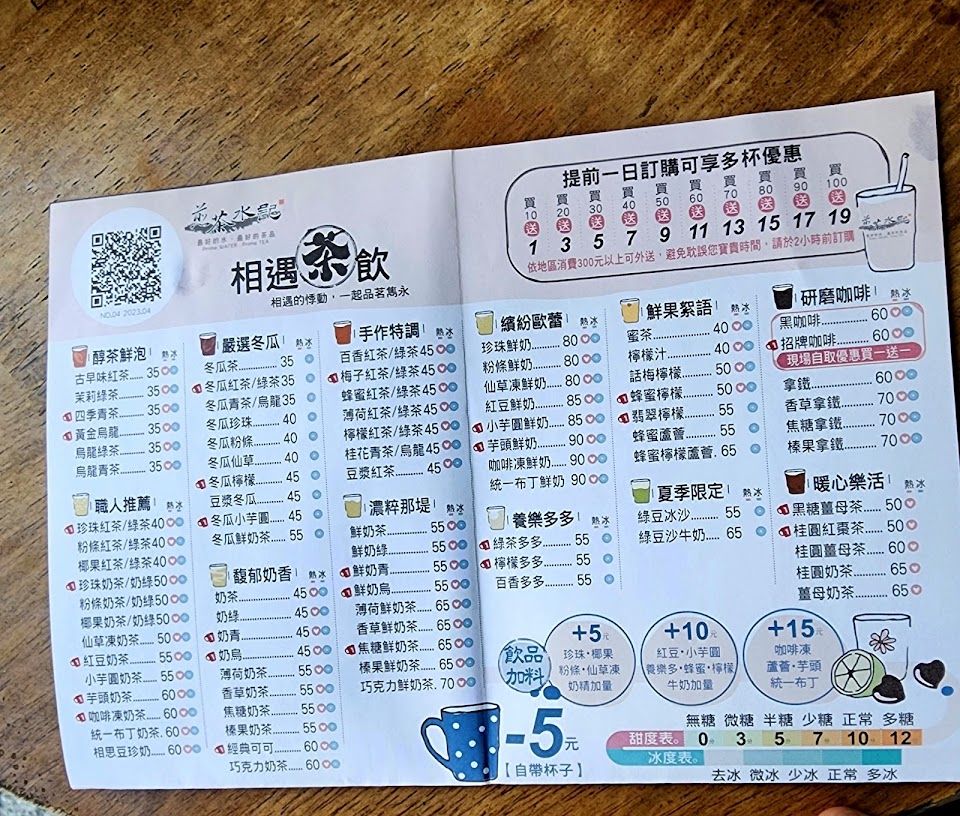 茶水記
最好的水、最好的茶品
Prime WATER、Prime TEA
NO.04 2023.04
相遇茶飲
相遇的悸動，一起品茗雋永
提前一日訂購可享多杯優惠
買10送1 買20送3 買30送5 買40送7 買50送9 買60送11 買70送13 買80送15 買90送17 買100送19
依地區消費300元以上可外送，避免耽誤您寶貴時間，請於2小時前訂購
醇茶鮮泡 熱 冰
古早味紅茶..... 35
茉莉綠茶..... 35
四季青茶..... 35
黃金烏龍..... 35
烏龍綠茶..... 35
烏龍青茶..... 35
職人推薦 熱 冰
珍珠紅茶/綠茶40
粉條紅茶/綠茶40
椰果紅茶/綠茶40
珍珠奶茶/奶綠50
粉條奶茶/奶綠50
椰果奶茶/奶綠50
仙草凍奶茶..... 50
紅豆奶茶..... 55
小芋圓奶茶..... 55
芋頭奶茶..... 60
咖啡凍奶茶..... 60
統一布丁奶茶. 60
相思豆珍奶..... 60
嚴選冬瓜 熱 冰
冬瓜茶..... 35
冬瓜紅茶/綠茶35
冬瓜青茶/烏龍35
冬瓜珍珠..... 40
冬瓜粉條..... 40
冬瓜仙草..... 40
冬瓜檸檬..... 45
豆漿冬瓜..... 45
冬瓜小芋圓..... 45
冬瓜鮮奶茶..... 55
馥郁奶香 熱 冰
奶茶..... 45
奶綠..... 45
奶青..... 45
奶烏..... 45
薄荷奶茶..... 55
香草奶茶..... 55
焦糖奶茶..... 55
榛果奶茶..... 55
經典可可..... 60
巧克力奶茶..... 60
手作特調 熱 冰
百香紅茶/綠茶45
梅子紅茶/綠茶45
蜂蜜紅茶/綠茶45
薄荷紅茶/綠茶45
檸檬紅茶/綠茶45
桂花青茶/烏龍45
豆漿紅茶..... 45
濃粹那堤 熱 冰
鮮奶茶..... 55
鮮奶綠..... 55
鮮奶青..... 55
鮮奶烏..... 55
薄荷鮮奶茶..... 65
香草鮮奶茶..... 65
焦糖鮮奶茶..... 65
榛果鮮奶茶..... 65
巧克力鮮奶茶. 70
繽紛歐蕾 熱 冰
珍珠鮮奶..... 80
粉條鮮奶..... 80
仙草凍鮮奶..... 80
紅豆鮮奶..... 85
小芋圓鮮奶..... 85
芋頭鮮奶..... 90
咖啡凍鮮奶..... 90
統一布丁鮮奶 90
養樂多多 熱 冰
綠茶多多..... 55
檸檬多多..... 55
百香多多..... 55
鮮果絮語 熱 冰
蜜茶..... 40
檸檬汁..... 40
話梅檸檬..... 50
蜂蜜檸檬..... 50
翡翠檸檬..... 55
蜂蜜蘆薈..... 55
蜂蜜檸檬蘆薈. 65
夏季限定 熱 冰
綠豆冰沙..... 55
綠豆沙牛奶..... 65
研磨咖啡 熱 冰
黑咖啡..... 60
招牌咖啡..... 60
現場自取優惠買一送一
拿鐵..... 60
香草拿鐵..... 70
焦糖拿鐵..... 70
榛果拿鐵..... 70
暖心樂活 熱 冰
黑糖薑母茶..... 50
桂圓紅棗茶..... 50
桂圓薑母茶..... 60
桂圓奶茶..... 65
薑母奶茶..... 65
飲品加料
+5元
珍珠·椰果
粉條·仙草凍
奶精加量
+10元
紅豆·小芋圓
養樂多·蜂蜜·檸檬
牛奶加量
+15元
咖啡凍
蘆薈·芋頭
統一布丁
-5元
【自帶杯子】
無糖 微糖 半糖 少糖 正常 多糖
甜度表。 0分 3分 5分 7分 10分 12
冰度表。
去冰 微冰 少冰 正常 多冰